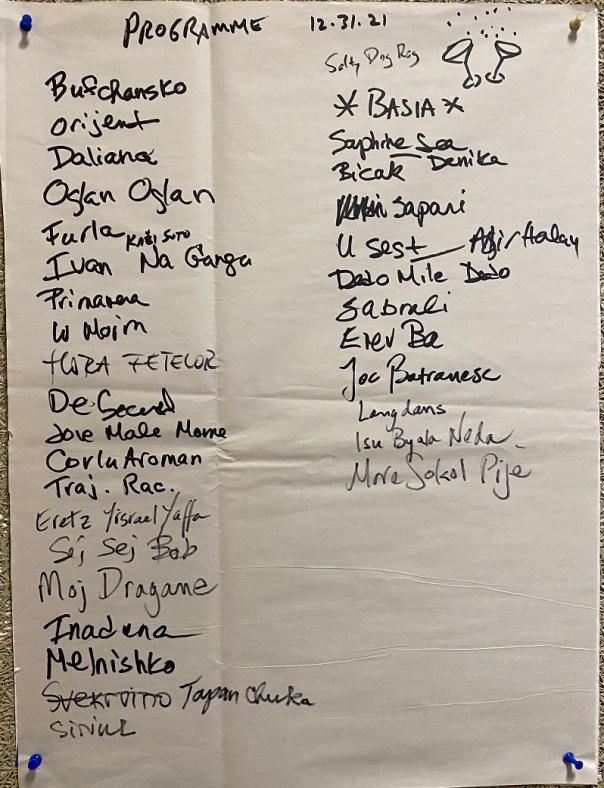 PROGRAMME 12.31.21
Bufchansko
Orijent
Daliana
Oglan Oglan
Furla Kazi Soto
Ivan Na Ganga
Primavera
W Moim
HORA FETELOR
De Secerat
Jove Male Mome
Corlu Aroman
Traj. Rac.
Eretz Yisrael Yaffa
Sej Sej Bob
Moj Dragane
Inadena
Melnishko
Svekrvino Tapan Chuka
Siriul
Salty Dog Rag
* BASIA *
Saphire Sea
Bicak Denika
Sapari
U Sest Agir Halay
Dedo Mile Dedo
Sabrali
Erev Ba
Joc Batranesc
Langdans
Isu Byala Neda
More Sokol Pije